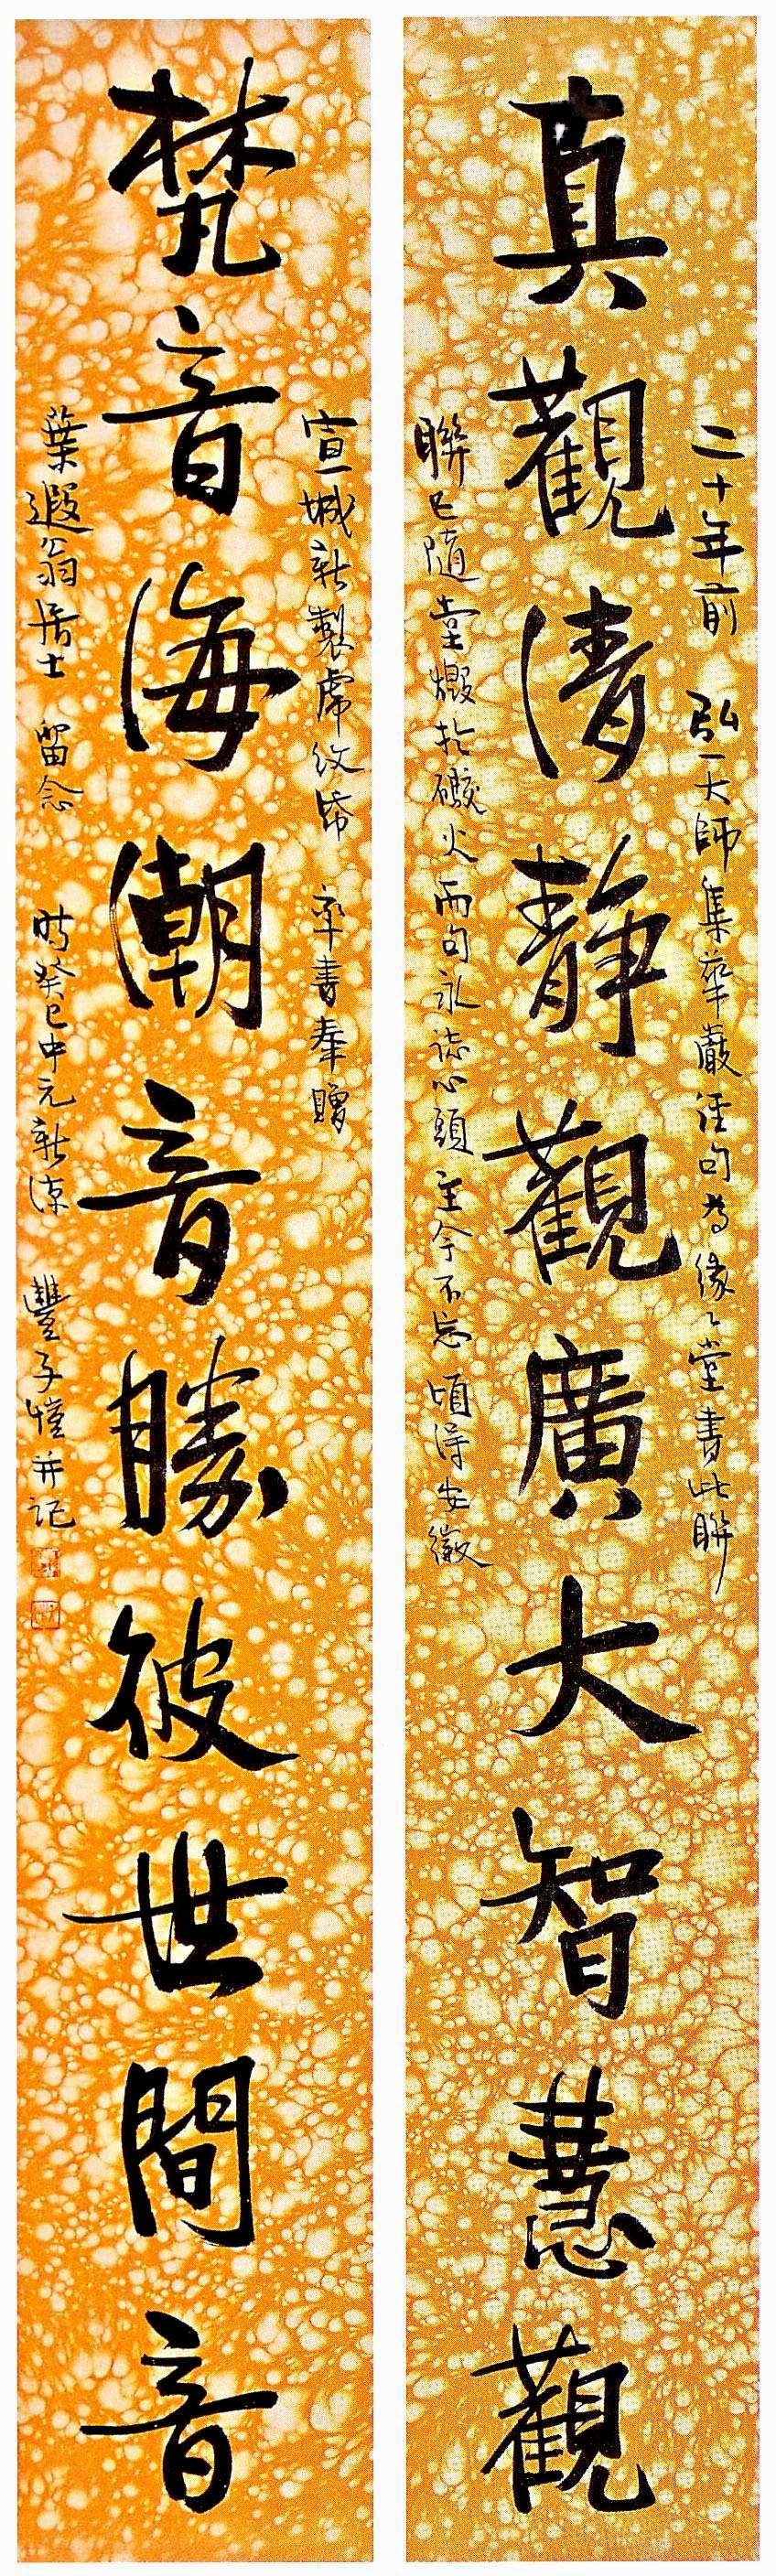 真觀清靜觀廣大智慧觀
二十年前 弘一大師集華嚴經句為緣緣堂書此聯
聯已隨堂燬於礮火而句永誌心頭至今不忘頃得安徽
梵音海潮音勝彼世間音
宣城新製虎紋帋 率書奉贈
葉遐翁居士 留念 時癸巳中元新涼 豐子愷并記